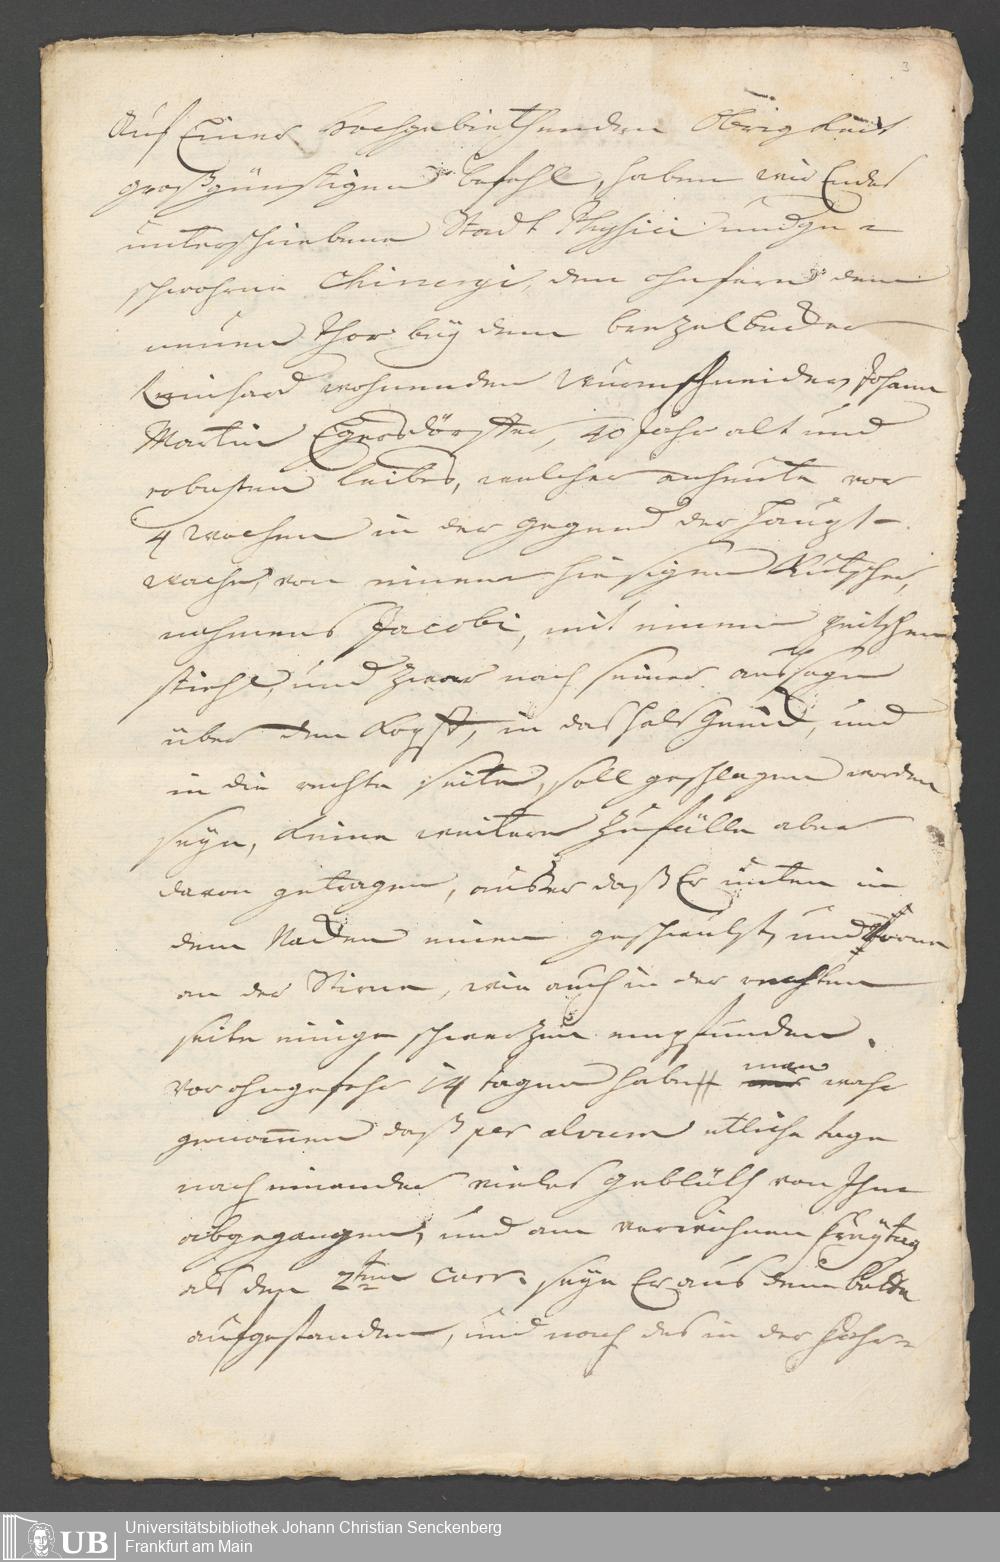 3
Auf Einer Hochgebiethenden Obrigkeit
großgünstigen befehl, haben wir Endes
unterschriebene Stadt Physici und ge=
schwohrne Chirurgi, den ohnfern dem
neuen Thor bey dem brezelbecker
Leinhard wohnenden Wurmschneider, Johann
Martin Egersdörffer, 40 Jahr alt und
robusten Leibes, welcher anheute vor
4 wochen in der gegend der Haupt=
wache, von einem hiesigen Kutscher,
nahmens Jacobi, mit einem peitschen
stiehl, und zwar nach seiner aussage
über den Kopff, in das Hals Genick, und
in die rechte seite, soll geschlagen worden
seyn, keine weitere Zufälle aber
davon getragen, ausser daß Er unten in
dem Nacken einen geschwulst, und vorne
an der Stirne, wie auch in der rechten
seite einige schmerzen empfunden.
Vor ohngefehr 14 tagen habe man wahr
genommen daß per alvum etliche tage
nach einander vieles geblüth von Ihm
abgegangen, und am verwichenen freytag
als den 2ten curr. seye Er aus dem bette
aufgestanden, und nach des in der
Universitätsbibliothek Johann Christian Senckenberg
UB Frankfurt am Main